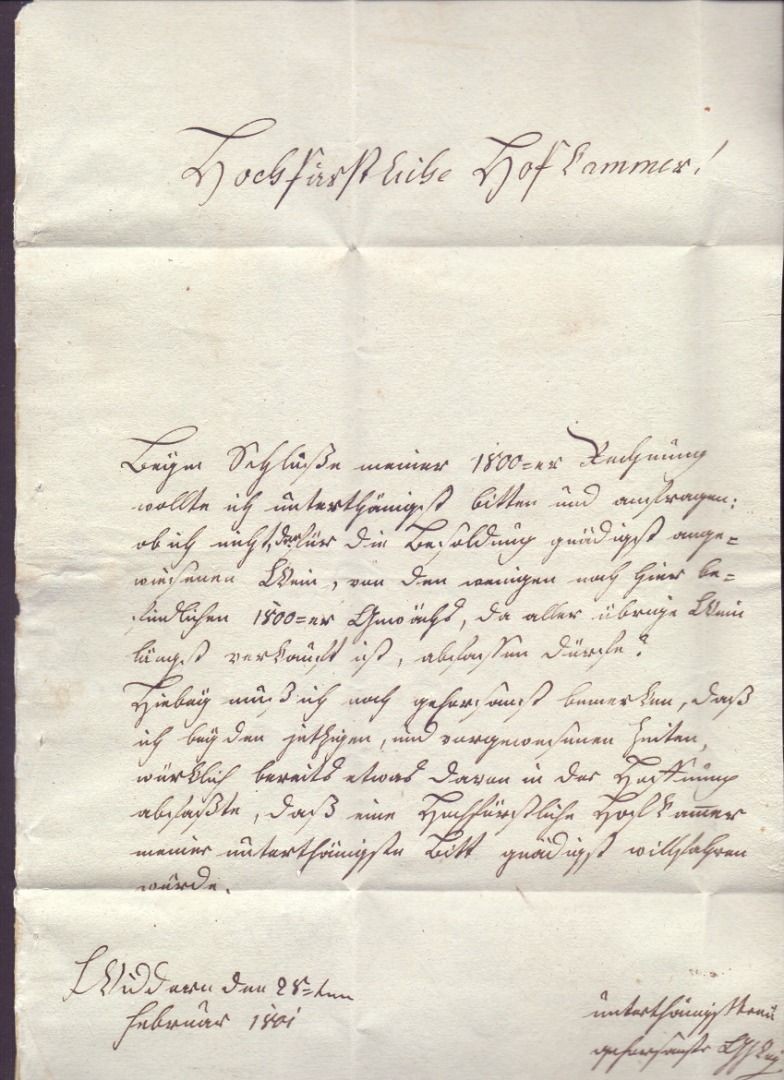 Hochfürstliche Hofkammer!
Beym Schluße meiner 1800=er Rechnung
wollte ich unterthänigst bitten und anfragen:
ob ich nicht, den für die Besoldung gnädigst ange=
wiesenen Wein, von den wenigen noch hier be=
findlichen 1800=er Gewächs, da aller übrige Wein
längst verkauft ist, abfassen dürfe?
Hiebey muß ich noch gehorsamst bemerken, daß
ich bey den jetzigen, und vorgewesenen Zeiten,
würklich bereits etwas davon in der Hoffnung
abfaßte, daß eine Hochfürstliche Hofkammer
meiner unterthänigsten Bitt gnädigst willfahren
würde.
Widdern den 28=ten
Februar 1801
unterthänigst treu
gehorsamster